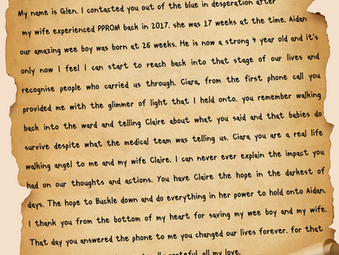 My name is Glen. I contacted you out of the blue in desperation after
my wife experienced PPROM back in 2017. she was 17 weeks at the time. Aidan
our amazing wee boy was born at 26 weeks. He is now a strong 4 year old and it's
only now I feel I can start to reach back into that stage of our lives and
recognise people who carried us through. Ciara, from the first phone call you
provided me with the glimmer of light that I held onto. you remember walking
back into the ward and telling Claire about what you said and that babies do
survive despite what the medical team was telling us. Ciara you are a real life
walking angel to me and my wife Claire. I can never ever explain the impact you
had on our thoughts and actions. You have Claire the hope in the darkest of
days. The hope to Buckle down and do everything in her power to hold onto Aidan.
I thank you from the bottom of my heart for saving my wee boy and my wife.
That day you answered the phone to me you changed our lives forever. for that
grateful. all my love.